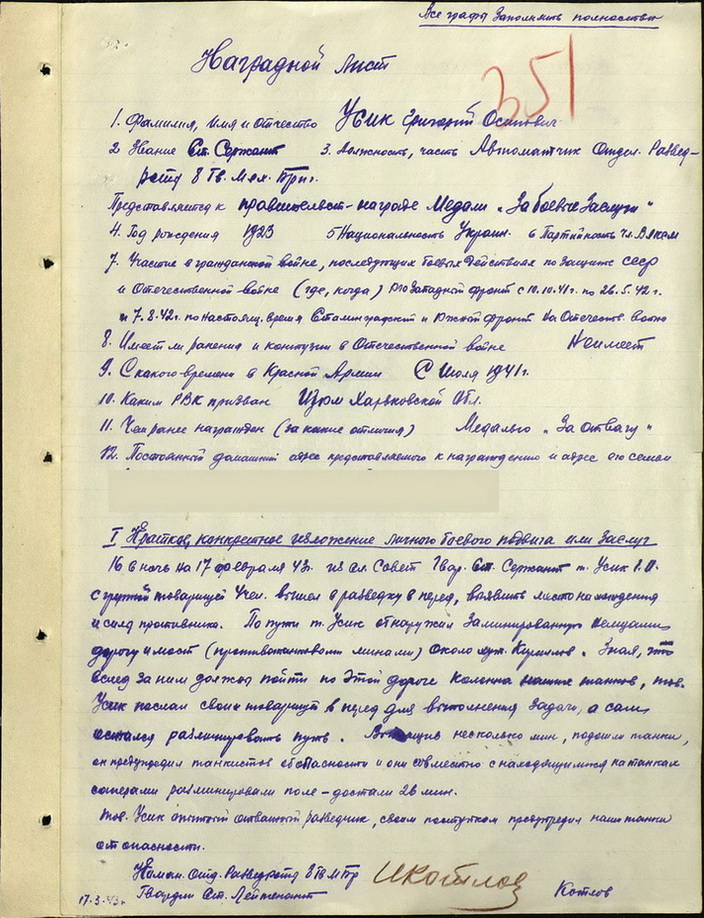 Все графы Заполнять полностью
Наградной лист
351
1. Фамилия, Имя и отчество Усик Григорий Осипович
2 Звание Ст. Сержант 3. Должность, часть Автоматчик Отдел. Развед-
роты 8 Гв. Мех. Бриг.
Представляется к правительст- награде Медаль „За боевые Заслуги"
4. Год рождения 1923 5 Национальность Украин. 6 Партийность чл. ВЛКСМ
7. Участие в гражданской войне, последующих боевых действиях по защите СССР
и Отечественной войне (где, когда) Югозападной фронт с 10.10.41г. по 26.5.42г.
и 7.8.42г. по настоящ. время Сталинградский и Южной фронт на Отечеств. войне
8. Имеет ли ранения и контузии в Отечественной войне Неимеет
9. С какого времени в Красной Армии С Июля 1941г.
10. Каким РВК призван Изюм Харьковской Обл.
11. Чем ранее награжден (за какие отличия) Медалью „За отвагу"
12. Постоянной домашний адрес представляемого к награждению и адрес его семьи
I Краткое, конкретное изложение личного боевого подвига или заслуг
16 в ночь на 17 февраля 43г. из сл. Совет Гвар. Ст. Сержант т. Усик Г.О.
с группой товарищей вышел в разведку в перед, выявить место нахождения
и силы противника. По пути т. Усик обнаружил Заминированную немцами
дорогу и мост (противотанковоми минами) Около хут. Кирилов. Зная, что
вслед за ним должна пойти по этой дороге Колонна наших танков, тов.
Усик послал своих товарищей в перед для выполнения задачи, а сам
остался разминировать путь. несколько мин, подошли танки,
он предупредил танкистов об опасности и они совместно с находящимися на танках
саперами разминировали поле - достали 26 мин.
тов. Усик опытный отважный разведчик, своим поступком предупредил наши танки
от опасности.
Ком. Отд. Разведроты 8 Гв МБр
Гвардии Ст. Лейтенант Котлов
17.3.43г